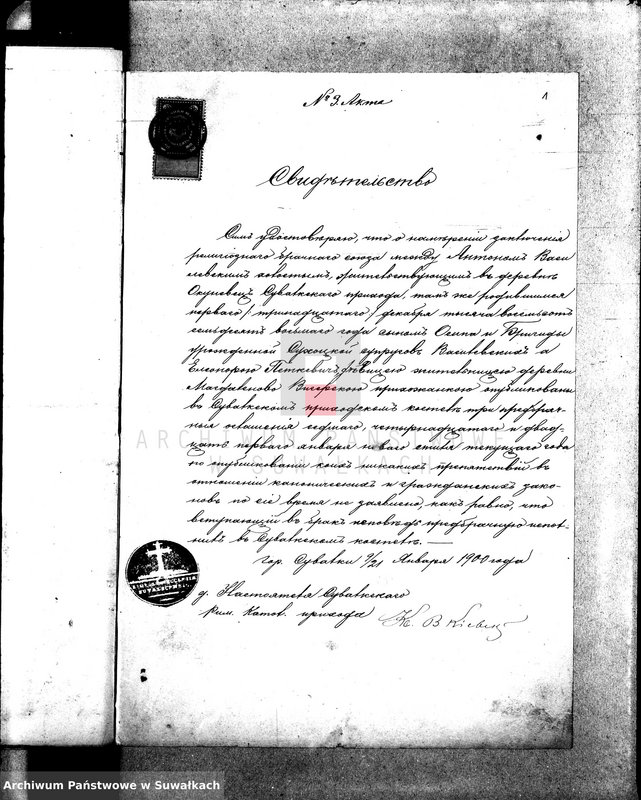 № 3. Акта
1
Свидѣтельство
Симъ удостовѣряю, что о намѣреніи заключенія
религіознаго брачнаго союза между Антономъ Васи
левскимъ холостымъ, жительствующимъ въ деревнѣ
Окуневецъ Сувалкскаго прихода, тамъ же родившимся
перваго /тринадцатаго/ декабря тысяча восемьсотъ
семьдесятъ восьмаго года сыномъ Осипа и Бригиды
урожденной Сухоцкой супруговъ Василевскихъ а
Елеонорою Петкевичъ дѣвицею жительницею деревни
Магдаленово Вигерскою прихожанкою опубликованы
въ Сувалкскомъ приходскомъ костелѣ три предбрач-
ныя оглашенія седьмаго, четырнадцатаго и двад-
цать перваго января новаго стиля текущаго года
по опубликованіи коихъ никакихъ препятствій въ
отношеніи каноническихъ и гражданскихъ зако-
новъ по сіе время не заявлено, какъ равно, что
вступающій въ бракъ исповѣдь предбрачную испол-
нилъ въ Сувалкскомъ костелѣ. —
гор. Сувалки 9/21 Января 1900 года
д. Настоятеля Сувалкскаго
Рим. Катол. прихода
Кс. В
ARCHIWUM PAŃSTWOWE
W SUWAŁKACH
Archiwum Państwowe w Suwałkach